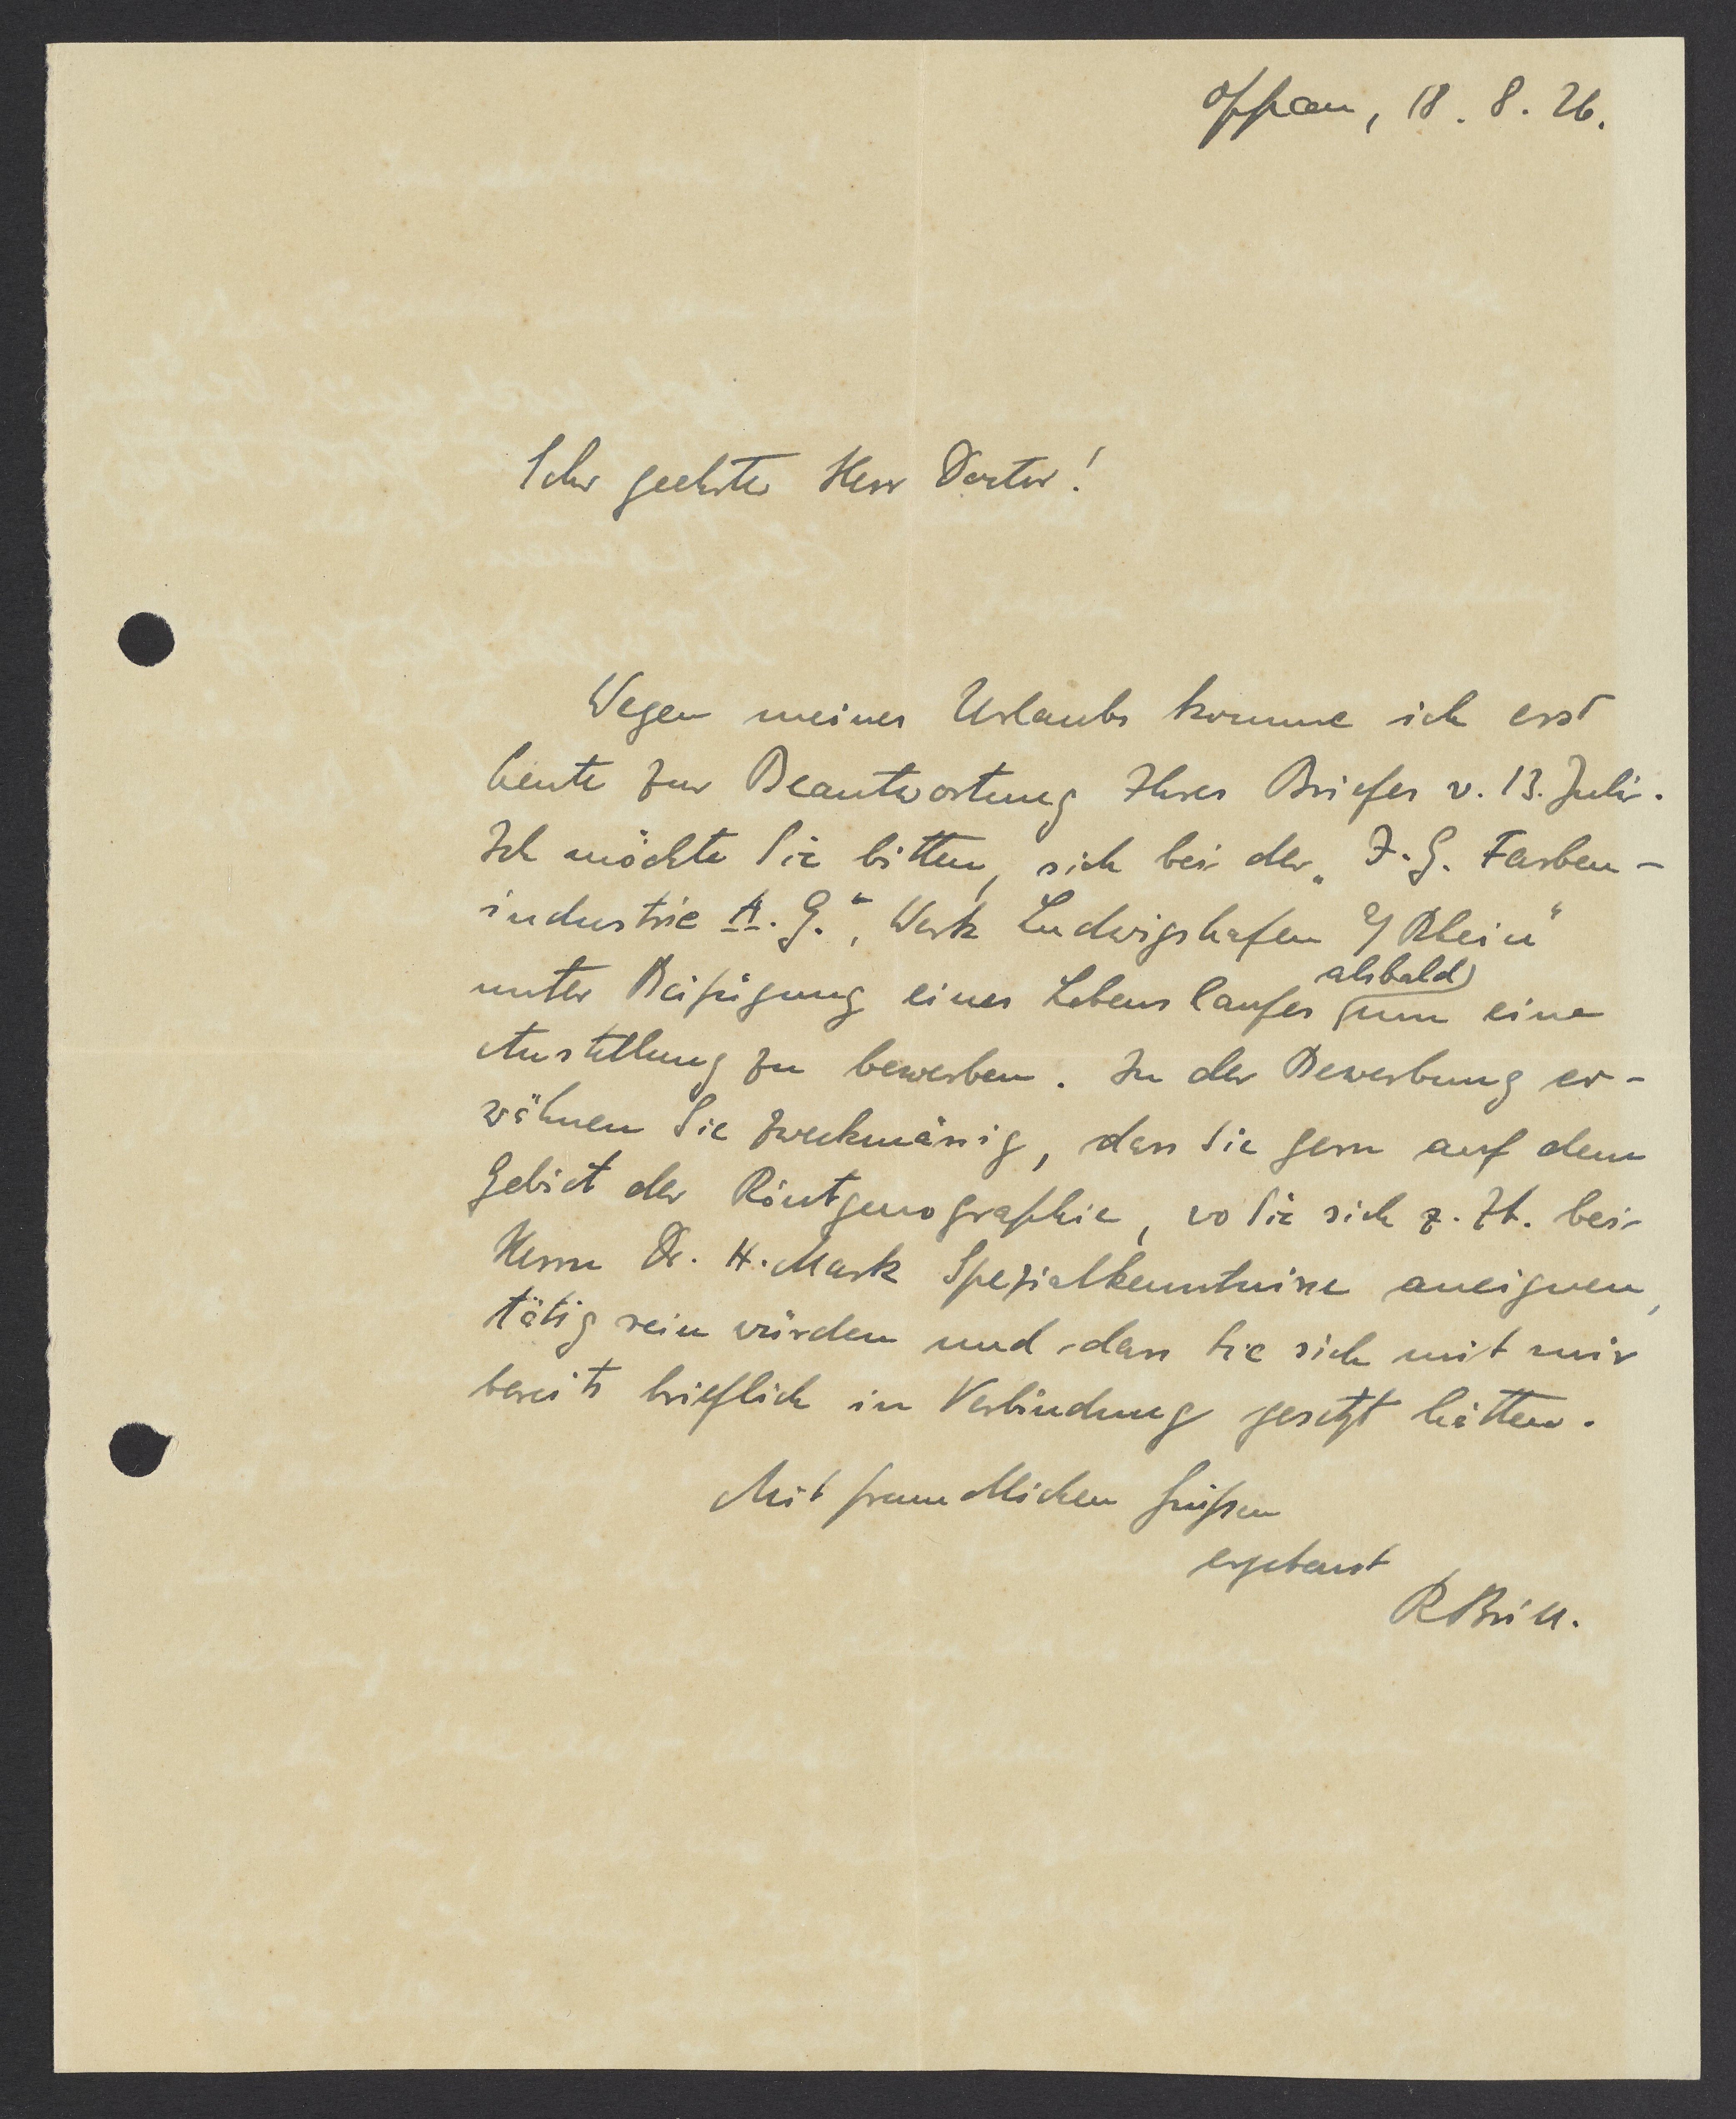 Oppau, 18. 8. 26.
Sehr geehrter Herr Doctor!
Wegen meines Urlaubs komme ich erst
heute zur Beantwortung Ihres Briefes v. 13. Juli.
Ich möchte Sie bitten, sich bei der „I. G. Farben-
industrie A. G.“, Werk Ludwigshafen a/ Rhein“
alsbald
unter Beifügung eines Lebenslaufes um eine
Anstellung zu bewerben. In der Bewerbung er-
wähnen Sie zweckmässig, dass Sie gern auf dem
Gebiet der Röntgenographie, wo Sie sich z. Zt. bei
Herrn Dr. H. Mark Spezialkenntnisse aneignen,
tätig sein würden und dass Sie sich mit mir
bereits brieflich in Verbindung gesetzt hätten.
Mit freundlichen Grüßen
ergebenst
R Brill.